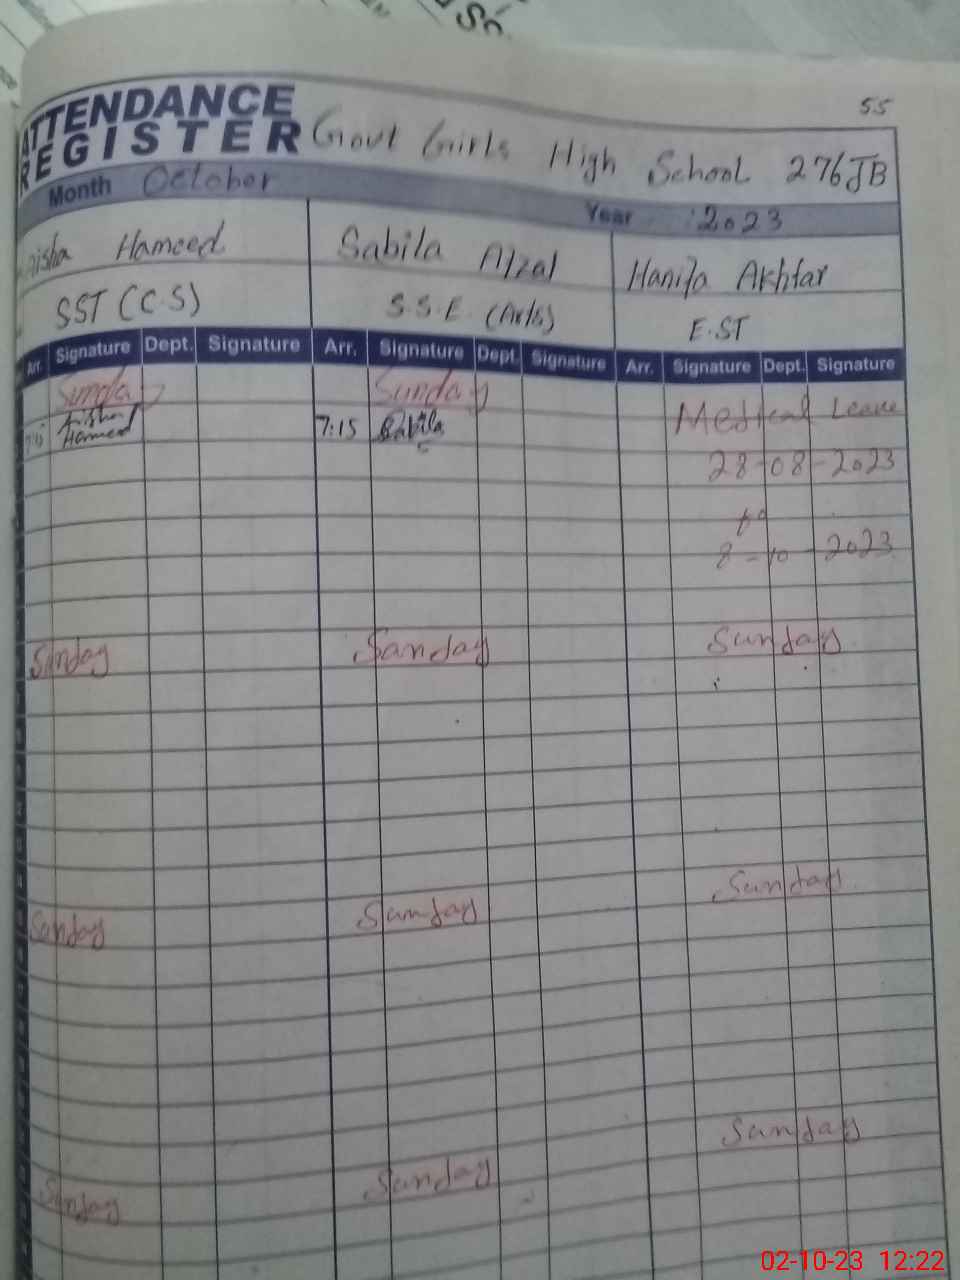 55
ATTENDANCE
REGISTER Govt Girls High School 276JB
Month October Year 2023
Hameed Sabila Afzal Hanifa Akhtar
SST (C.S) S.S.E. (Arts) E.ST
Arr. Signature Dept. Signature Arr. Signature Dept. Signature Arr. Signature Dept. Signature
Sunday Sunday
Aisha Hameed 7:15 Sabila Medical Leave
28-08-2023
to
8-10-2023
Sunday Sunday Sunday
Sunday Sunday Sunday
Sunday Sunday Sunday
02-10-23 12:22